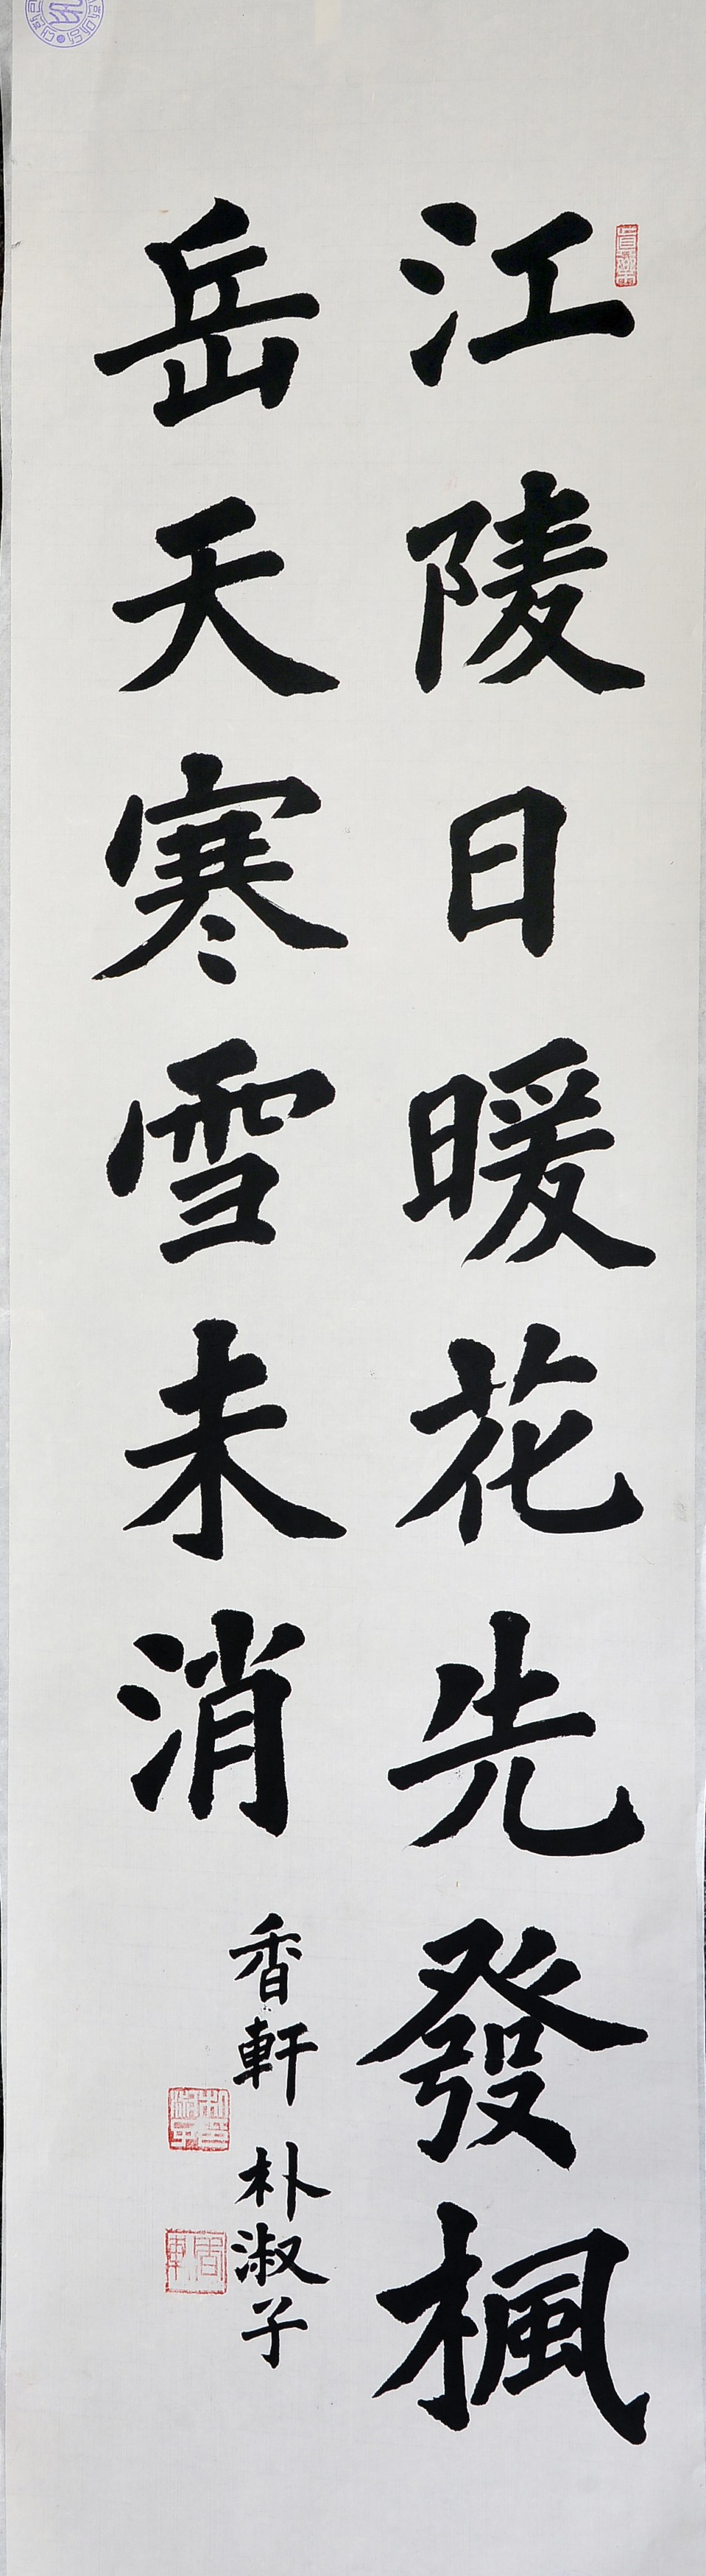 江陵日暖花先發楓
岳天寒雪未消
香軒 朴淑子